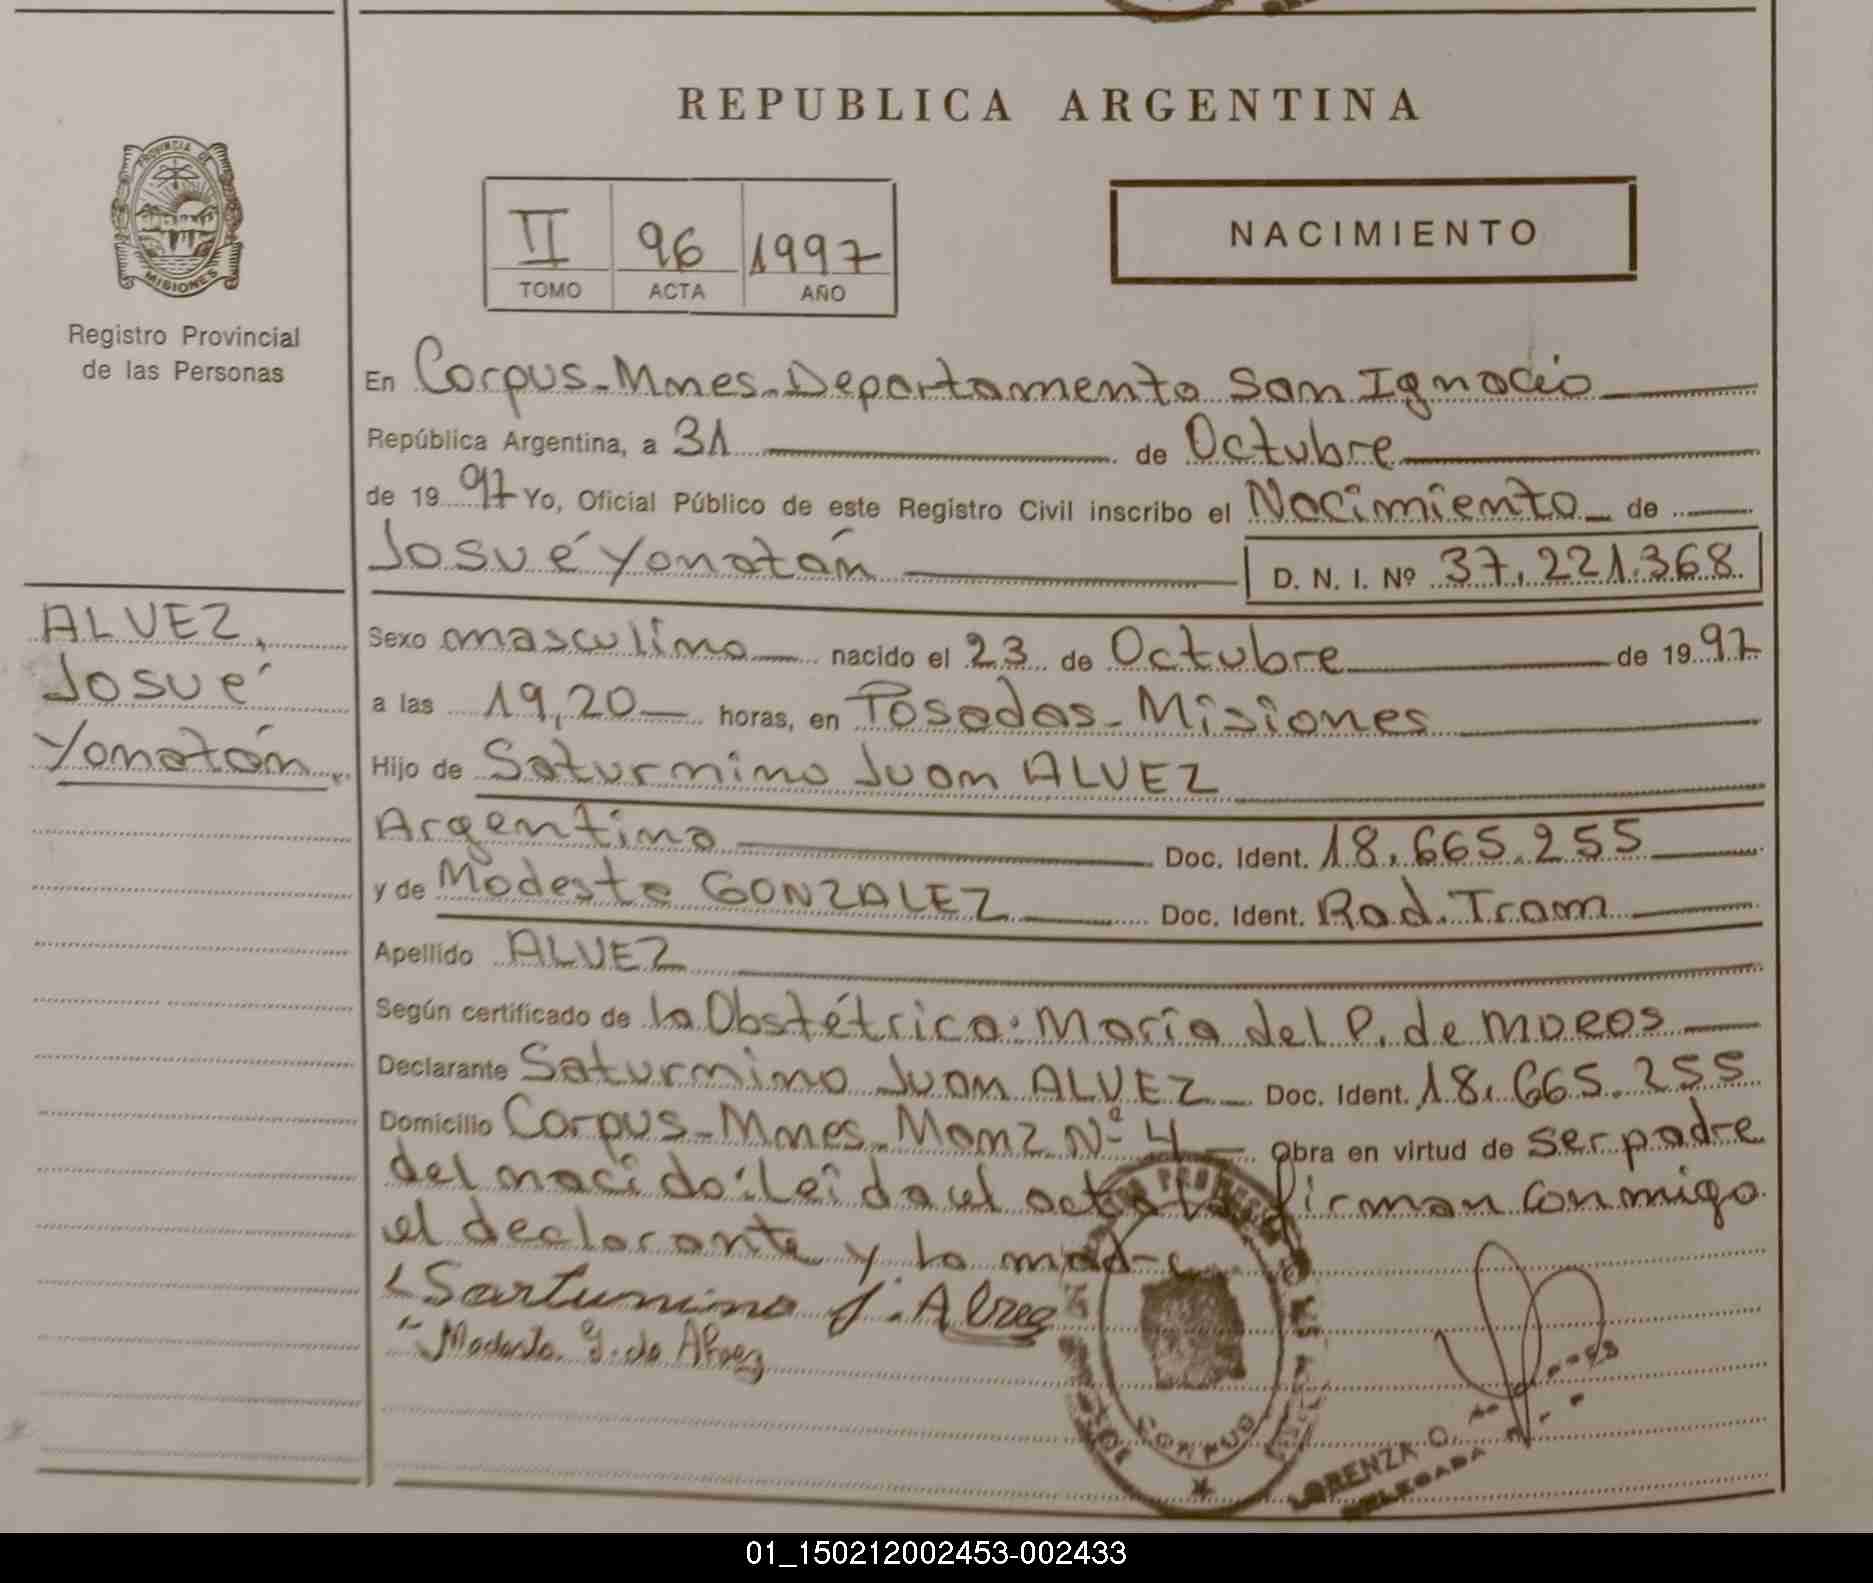 REPUBLICA ARGENTINA
PROVINCIA DE
MISIONES
Registro Provincial
de las Personas
II 96 1997
TOMO ACTA AÑO
NACIMIENTO
En Corpus-Mnes-Departamento San Ignacio
República Argentina, a 31 de Octubre
de 1997 Yo, Oficial Público de este Registro Civil inscribo el Nacimiento de
Josué Yonatán D. N. I. Nº 37.221.368
ALVEZ,
Josué
Yonatán
Sexo masculino nacido el 23 de Octubre de 1997
a las 19,20 horas, en Posadas-Misiones
Hijo de Saturnino Juan ALVEZ
Argentino Doc. Ident. 18.665.255
y de Modesta GONZALEZ Doc. Ident. Rad. Tram
Apellido ALVEZ
Según certificado de la Obstétrica: María del P. de MOROS
Declarante Saturnino Juan ALVEZ Doc. Ident. 18.665.255
Domicilio Corpus-Mnes-Manz Nº 4 Obra en virtud de ser padre
del nacido: Leída el acta la firman conmigo
el declarante y la madre
Sartunino J. Alvez
Modesta G. de Alvez
CORPUS
LORENZA O.
DELEGADA
01_150212002453-002433